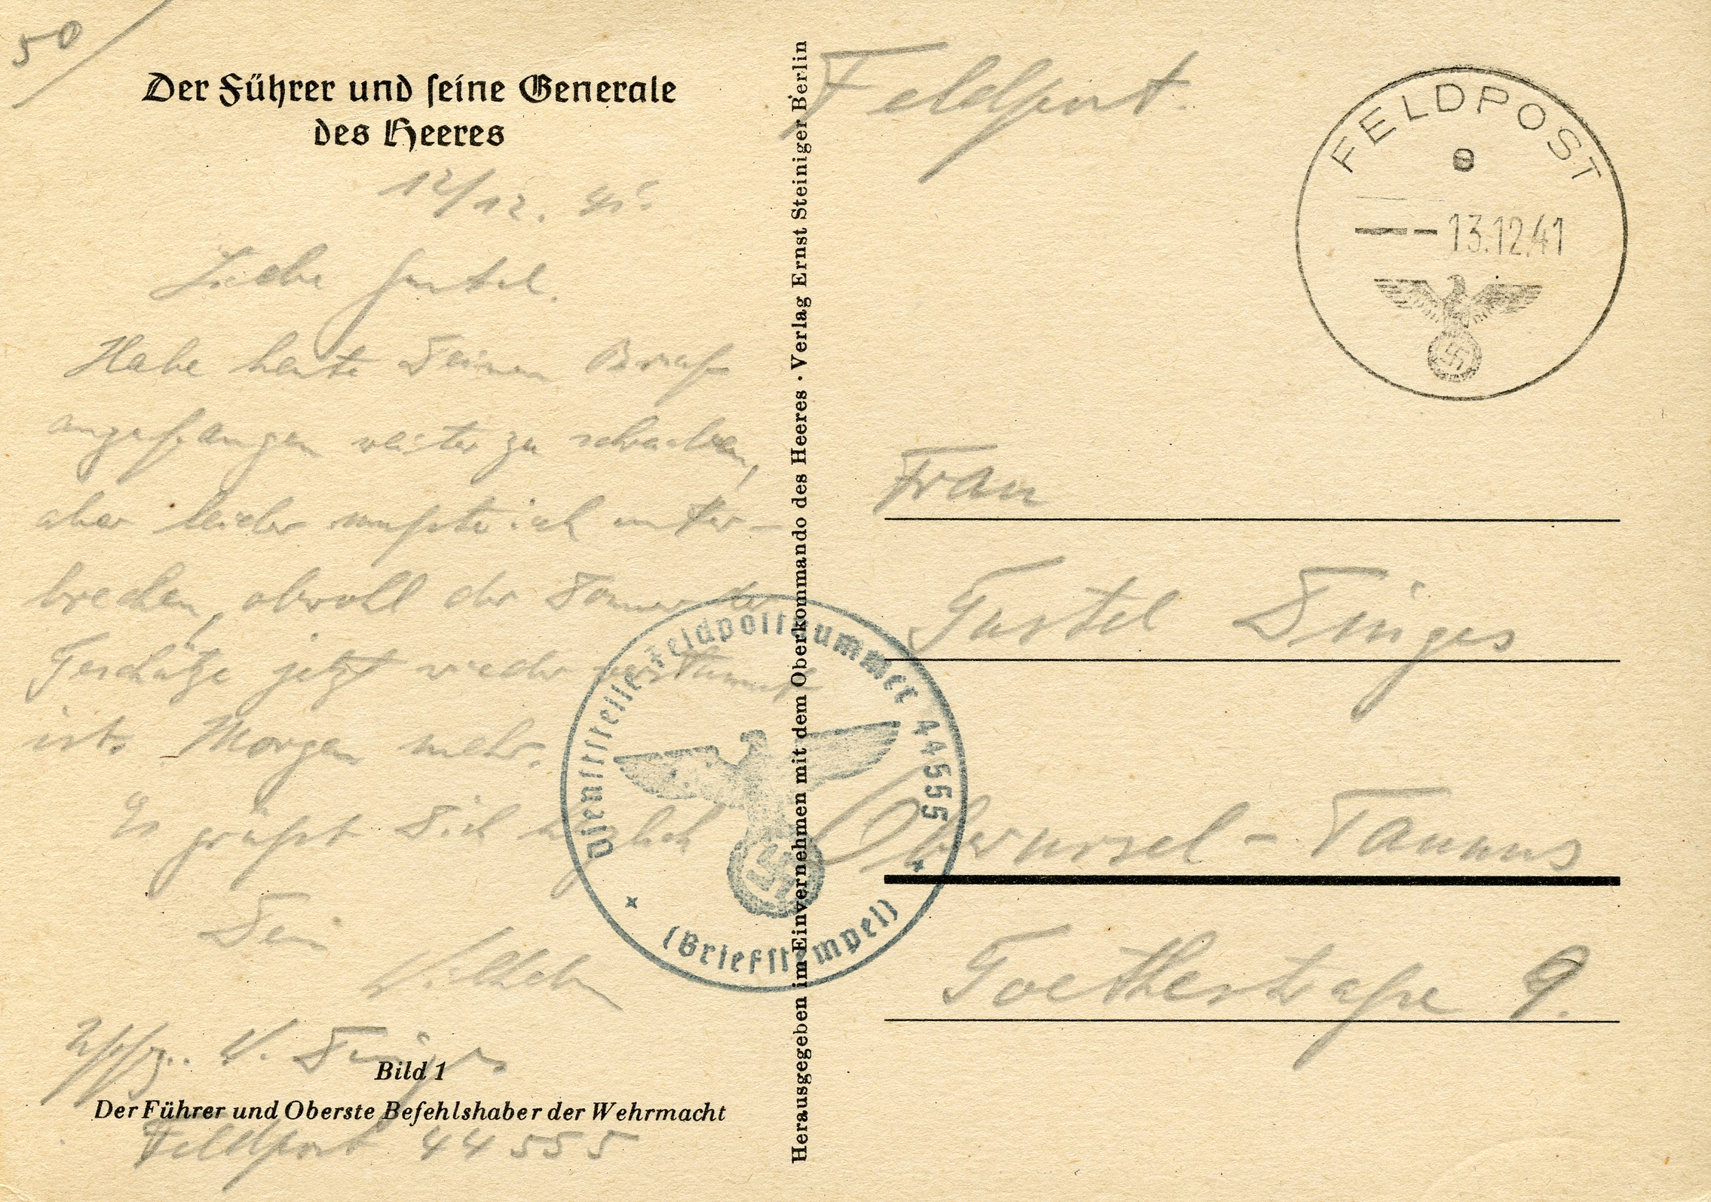 50
Der Führer und seine Generale
des Heeres
12/12. 41.
Liebe Gustel.
Habe heute Deinen Brief
angefangen weiter zu schreiben,
aber leider mußte ich unter-
brechen, obwohl der Donner der
Geschütze jetzt wieder verstummt
ist. Morgen mehr.
Es grüßt Dich herzlich
Dein
Wilhelm
Uffz. W. Dinges
Bild 1
Der Führer und Oberste Befehlshaber der Wehrmacht
Feldpost 44555
Herausgegeben im Einvernehmen mit dem Oberkommando des Heeres · Verlag Ernst Steiniger Berlin
Dienststelle Feldpostnummer 44555
(Briefstempel)
Feldpost.
FELDPOST
e
13.12.41
Frau
Gustel Dinges
Oberursel - Taunus
Goethestraße 9.